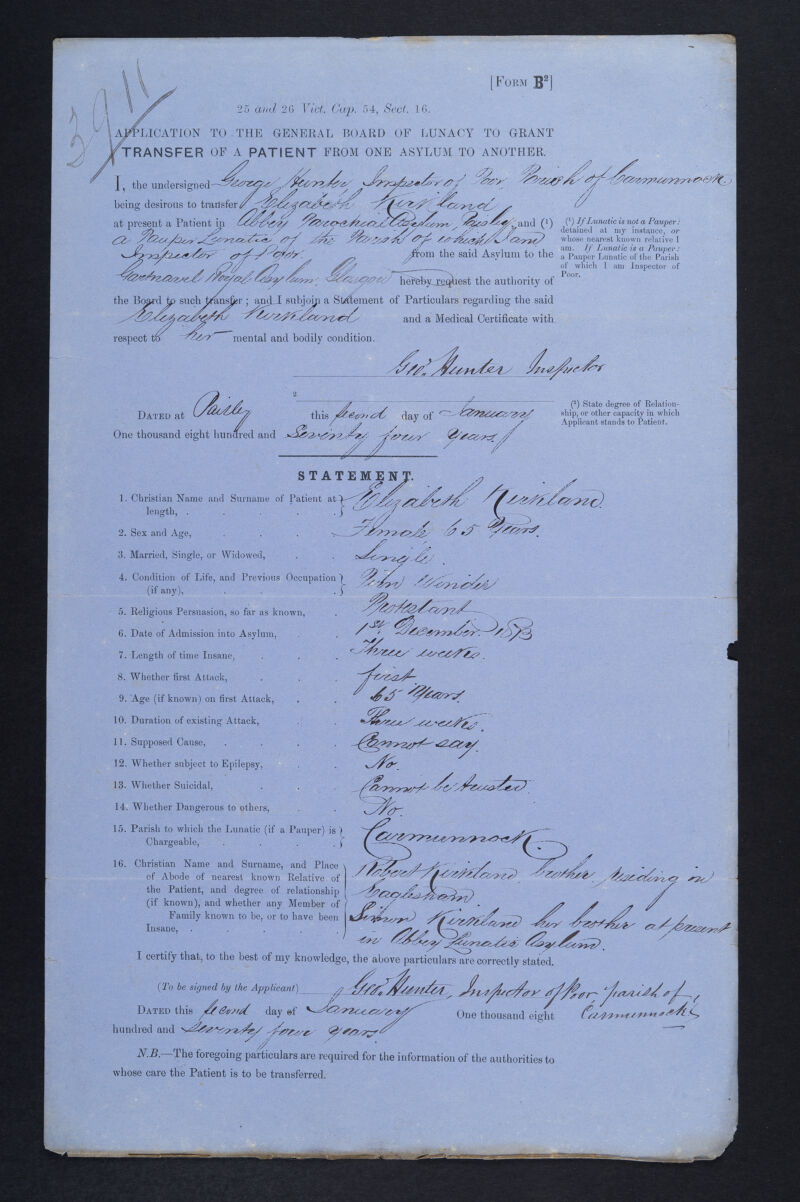 3911
[Form B²]
25 and 26 Vict. Cap. 54, Sect. 16.
APPLICATION TO THE GENERAL BOARD OF LUNACY TO GRANT
TRANSFER OF A PATIENT FROM ONE ASYLUM TO ANOTHER.
I, the undersigned George Hunter, Inspector of Poor Parish of Carmunnock
being desirous to transfer Elizabeth Kirkland
at present a Patient in Abbey Parochial Asylum, Paisley and (¹)
a Pauper Lunatic of the Parish of which I am
Inspector of Poor from the said Asylum to the
Gartnavel Royal Asylum, Glasgow hereby request the authority of
the Board to such transfer; and I subjoin a Statement of Particulars regarding the said
Elizabeth Kirkland and a Medical Certificate with
respect to her mental and bodily condition.
(¹) If Lunatic is not a Pauper:
detained at my instance, or
whose nearest known relative I
am. If Lunatic is a Pauper:
a Pauper Lunatic of the Parish
of which I am Inspector of
Poor.
Geo. Hunter Inspector
2
Dated at Paisley this second day of January
One thousand eight hundred and Seventy four years
(²) State degree of Relation-
ship, or other capacity in which
Applicant stands to Patient.
STATEMENT.
1. Christian Name and Surname of Patient at length, . . Elizabeth Kirkland.
2. Sex and Age, . . . . Female 65 Years.
3. Married, Single, or Widowed, . . Single.
4. Condition of Life, and Previous Occupation (if any), . . . Pirn Winder
5. Religious Persuasion, so far as known, . Protestant
6. Date of Admission into Asylum, . . 1st. December 1873
7. Length of time Insane, . . . Three weeks.
8. Whether first Attack, . . . first
9. Age (if known) on first Attack, . . 65 Years.
10. Duration of existing Attack, . . Three weeks.
11. Supposed Cause, . . . . Cannot say.
12. Whether subject to Epilepsy, . . No.
13. Whether Suicidal, . . . Cannot be trusted.
14. Whether Dangerous to others, . . No.
15. Parish to which the Lunatic (if a Pauper) is Chargeable, . . . . Carmunnock.
16. Christian Name and Surname, and Place
of Abode of nearest known Relative of
the Patient, and degree of relationship
(if known), and whether any Member of
Family known to be, or to have been
Insane, . . . . .
Robert Kirkland brother residing in
Eaglesham
Simon Kirkland her brother at present
in Abbey Lunatic Asylum.
I certify that, to the best of my knowledge, the above particulars are correctly stated.
(To be signed by the Applicant) Geo. Hunter, Inspector of Poor, parish of
Carmunnock
Dated this second day of January One thousand eight
hundred and Seventy four years.
N.B.—The foregoing particulars are required for the information of the authorities to
whose care the Patient is to be transferred.